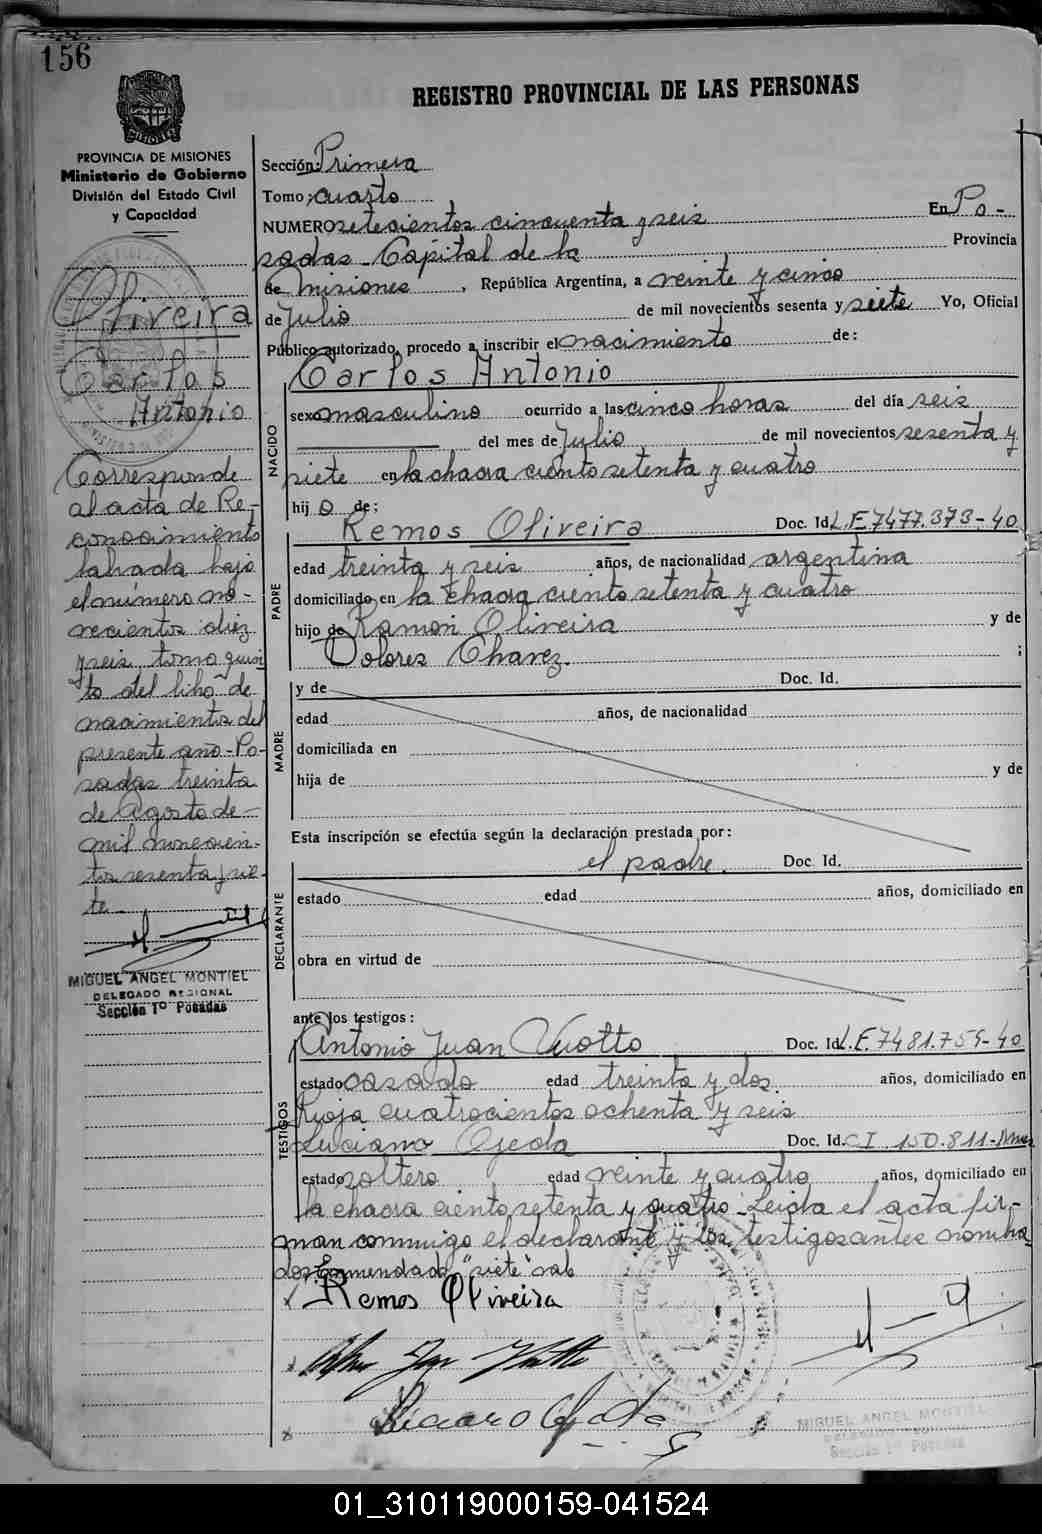 156
REGISTRO PROVINCIAL DE LAS PERSONAS
MISIONES
PROVINCIA DE MISIONES
Ministerio de Gobierno
División del Estado Civil
y Capacidad
Oliveira
Carlos
Antonio
Corresponde
al acta de Re-
conocimiento
labrada bajo
el número no-
vecientos diez
y seis, tomo quin
to del libro de
nacimientos del
presente año - Po-
sadas treinta
de Agosto de
mil novecien-
tos sesenta y sie-
te
MIGUEL ANGEL MONTIEL
DELEGADO REGIONAL
Sección 1º Posadas
Sección: Primera
Tomo: cuarto
NUMERO setecientos cincuenta y seis En Po-
sadas - Capital de la Provincia
de misiones, República Argentina, a veinte y cinco
de Julio de mil novecientos sesenta y siete Yo, Oficial
Público autorizado, procedo a inscribir el nacimiento de:
Carlos Antonio
NACIDO
sexo masculino ocurrido a las cinco horas del día seis
del mes de Julio de mil novecientos sesenta y
siete en la chacra ciento setenta y cuatro
hij o de:
Remos Oliveira Doc. Id. L.E 7477.373-40
PADRE
edad treinta y seis años, de nacionalidad argentina
domiciliado en la chacra ciento setenta y cuatro
hijo de Ramon Oliveira y de
Dolores Chavez. ;
MADRE
y de Doc. Id.
edad años, de nacionalidad
domiciliada en
hija de y de
Esta inscripción se efectúa según la declaración prestada por:
el padre. Doc. Id.
DECLARANTE
estado edad años, domiciliado en
obra en virtud de
ante los testigos:
Antonio Juan Vuotto Doc. Id. L.E. 7481.759-40
TESTIGOS
estado casado edad treinta y dos años, domiciliado en
Rioja cuatrocientos ochenta y seis
Luciano Ojeda Doc. Id. C I 150.811-Mnes
estado soltero edad veinte y cuatro años, domiciliado en
la chacra ciento setenta y cuatro - Leida el acta fir-
man conmigo el declarante y los testigos antes nombra
dos Enmendado "siete" vale
Remos Oliveira
Luciano Ojeda
MIGUEL ANGEL MONTIEL
DELEGADO REGIONAL
Sección 1º Posadas
01_310119000159-041524